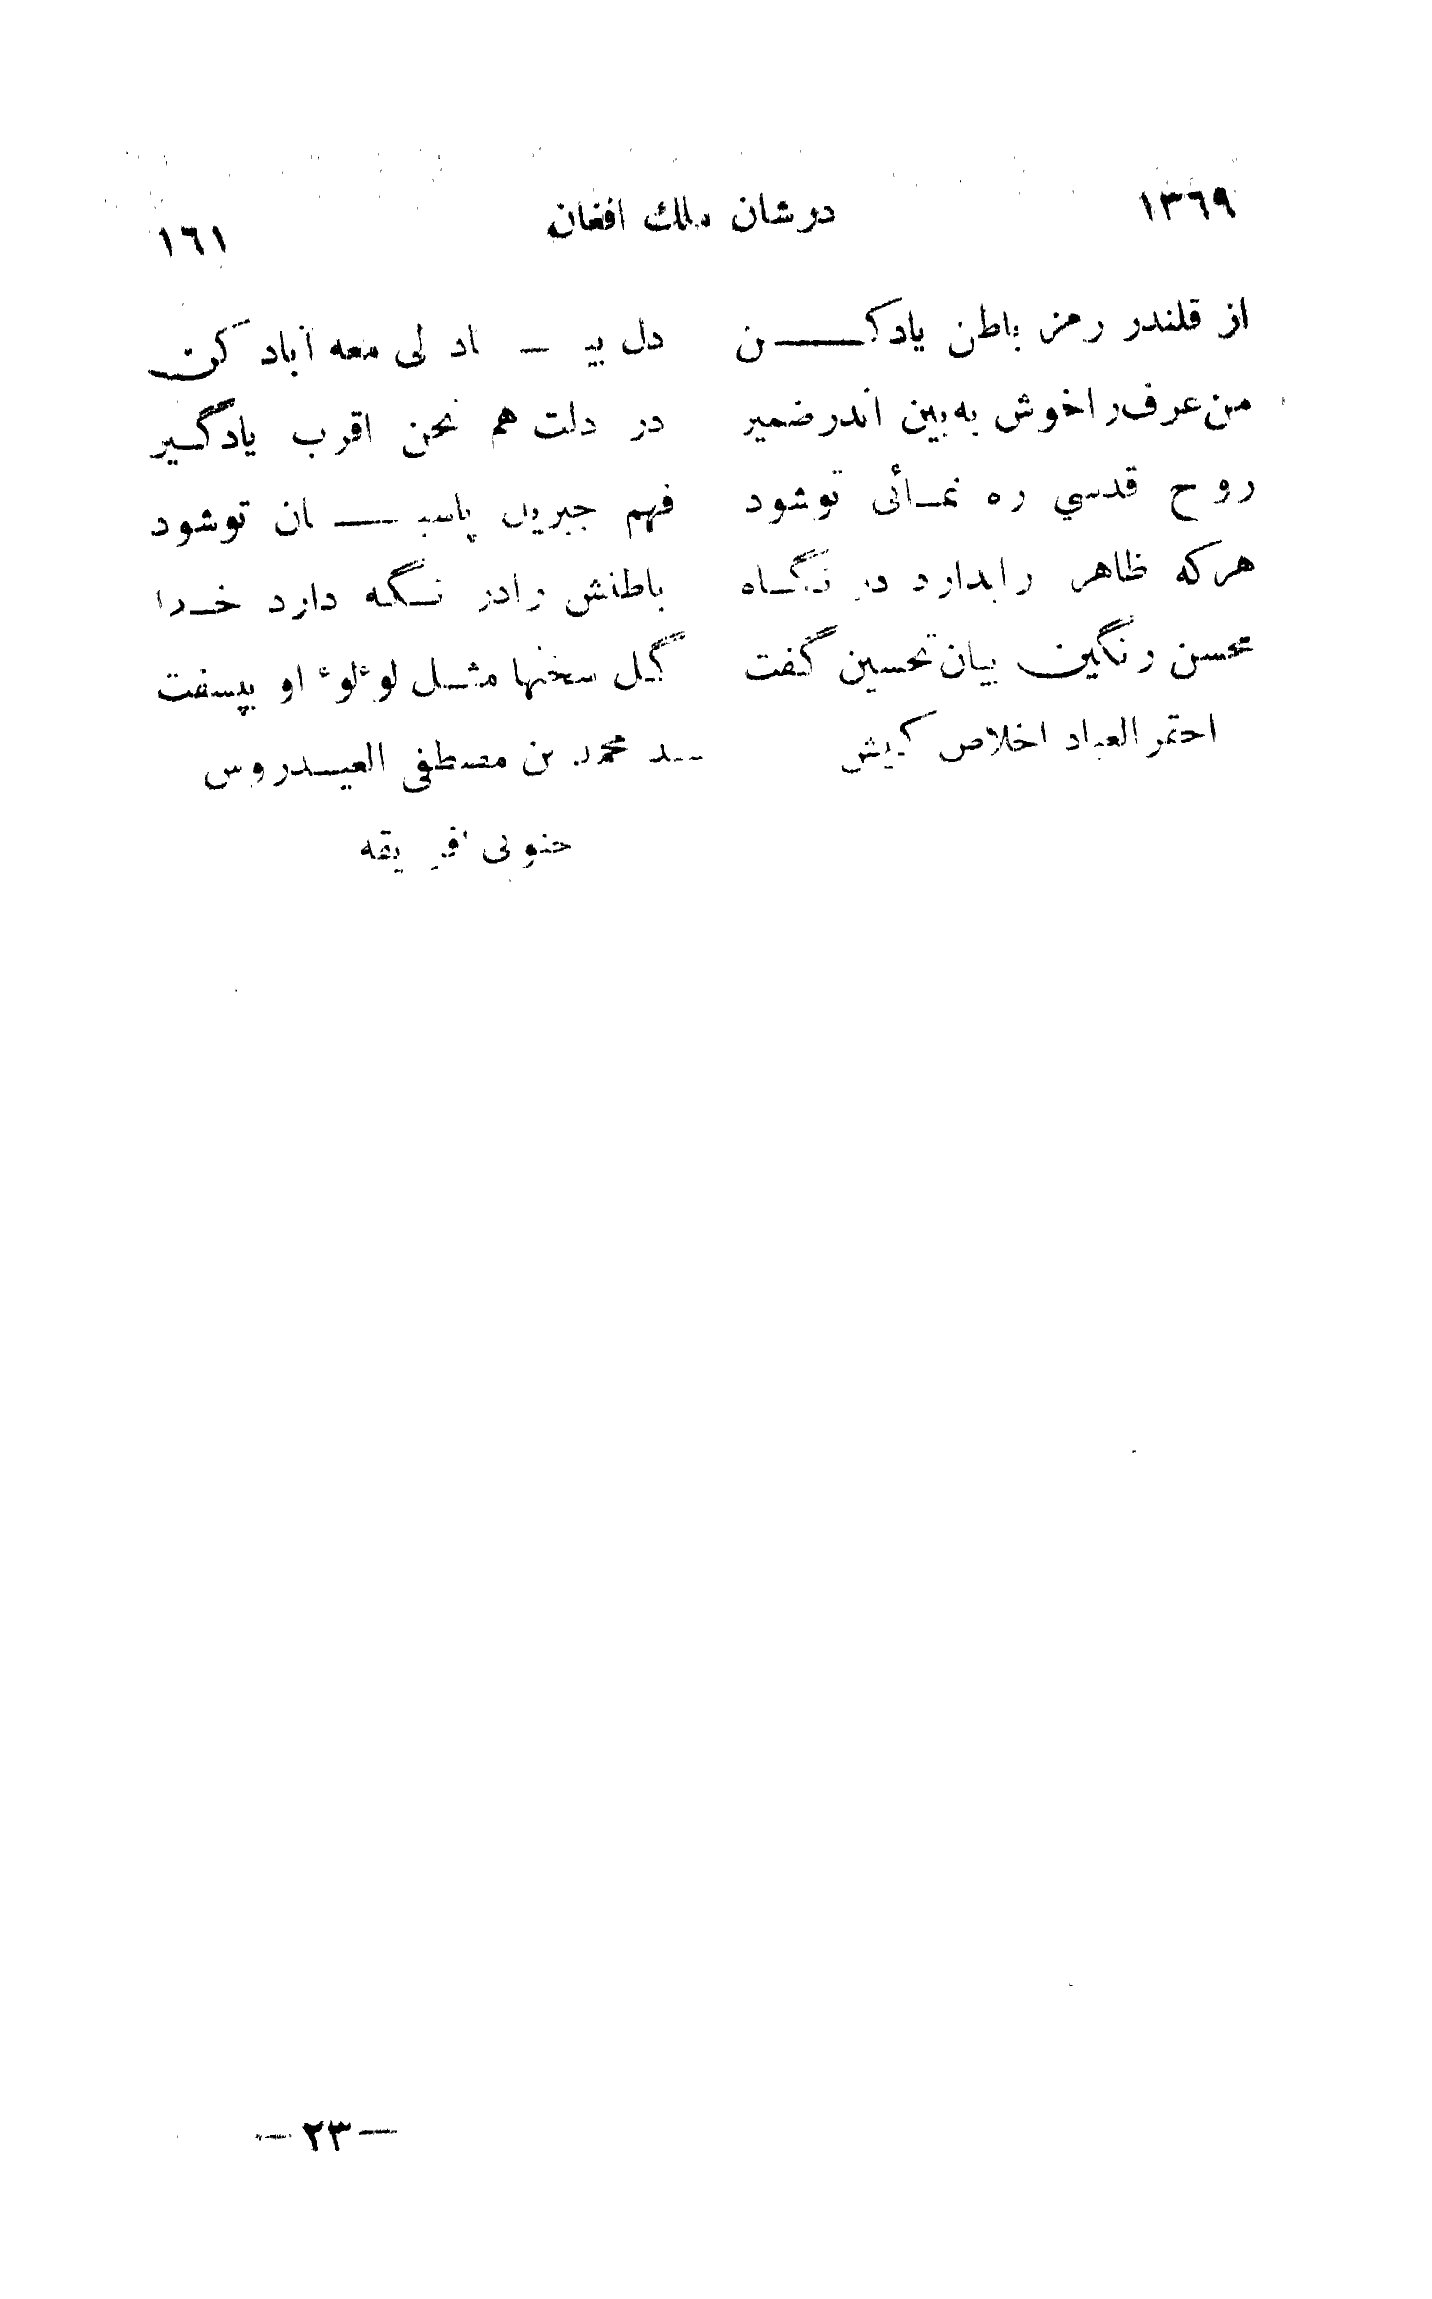 ١٣٦٩ در شان ملك افغان ١٦١
از قلندر رمز باطن ياد كن دل بيـاد لى معه آباد كن
من عرف را خوش به بين اندر ضمير در دلت هم نحن اقرب ياد گير
روح قدسي ره نمائى تو شود فهم جبريل پاسبان تو شود
هر كه ظاهر را بدارد در نگاه باطنش را در نگه دارد خدا
محسن رنگين بيان تحسين گفت گل سخنها مثل لوٴلوٴ او بسفت
احقر العباد اخلاص كيش سيد محمد بن مصطفى العيدروس
جنوبى افريقه
— ٢٣ —